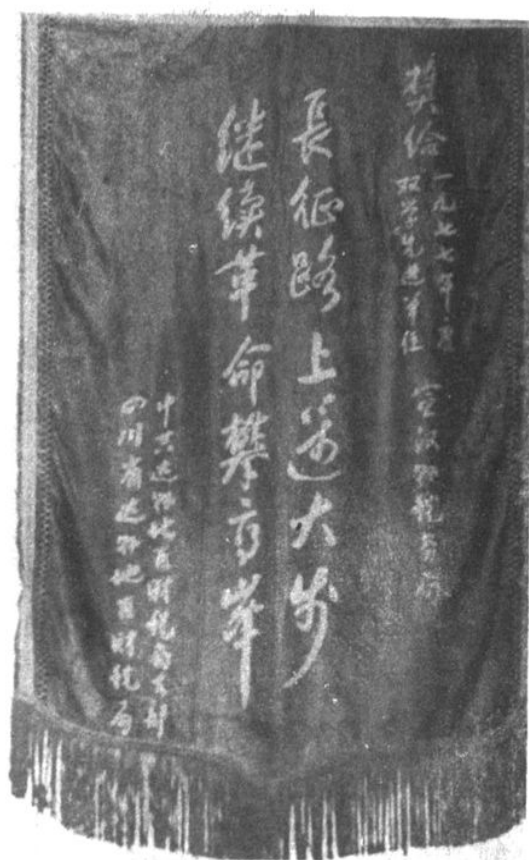 奖给一九七七年度
双学先进单位 宣汉县税务局
長征路上迈大步
继续革命攀高峰
中共达县地区财税局支部
四川省达县地区财税局